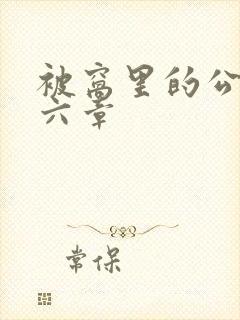 被窝里的公
六章
常保